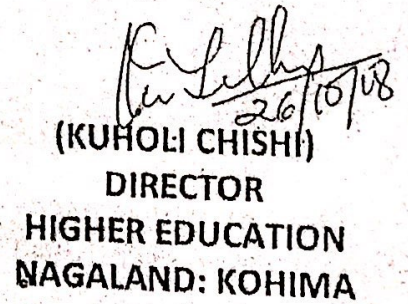 26/10/18
(KUHOLI CHISHI)
DIRECTOR
HIGHER EDUCATION
NAGALAND: KOHIMA